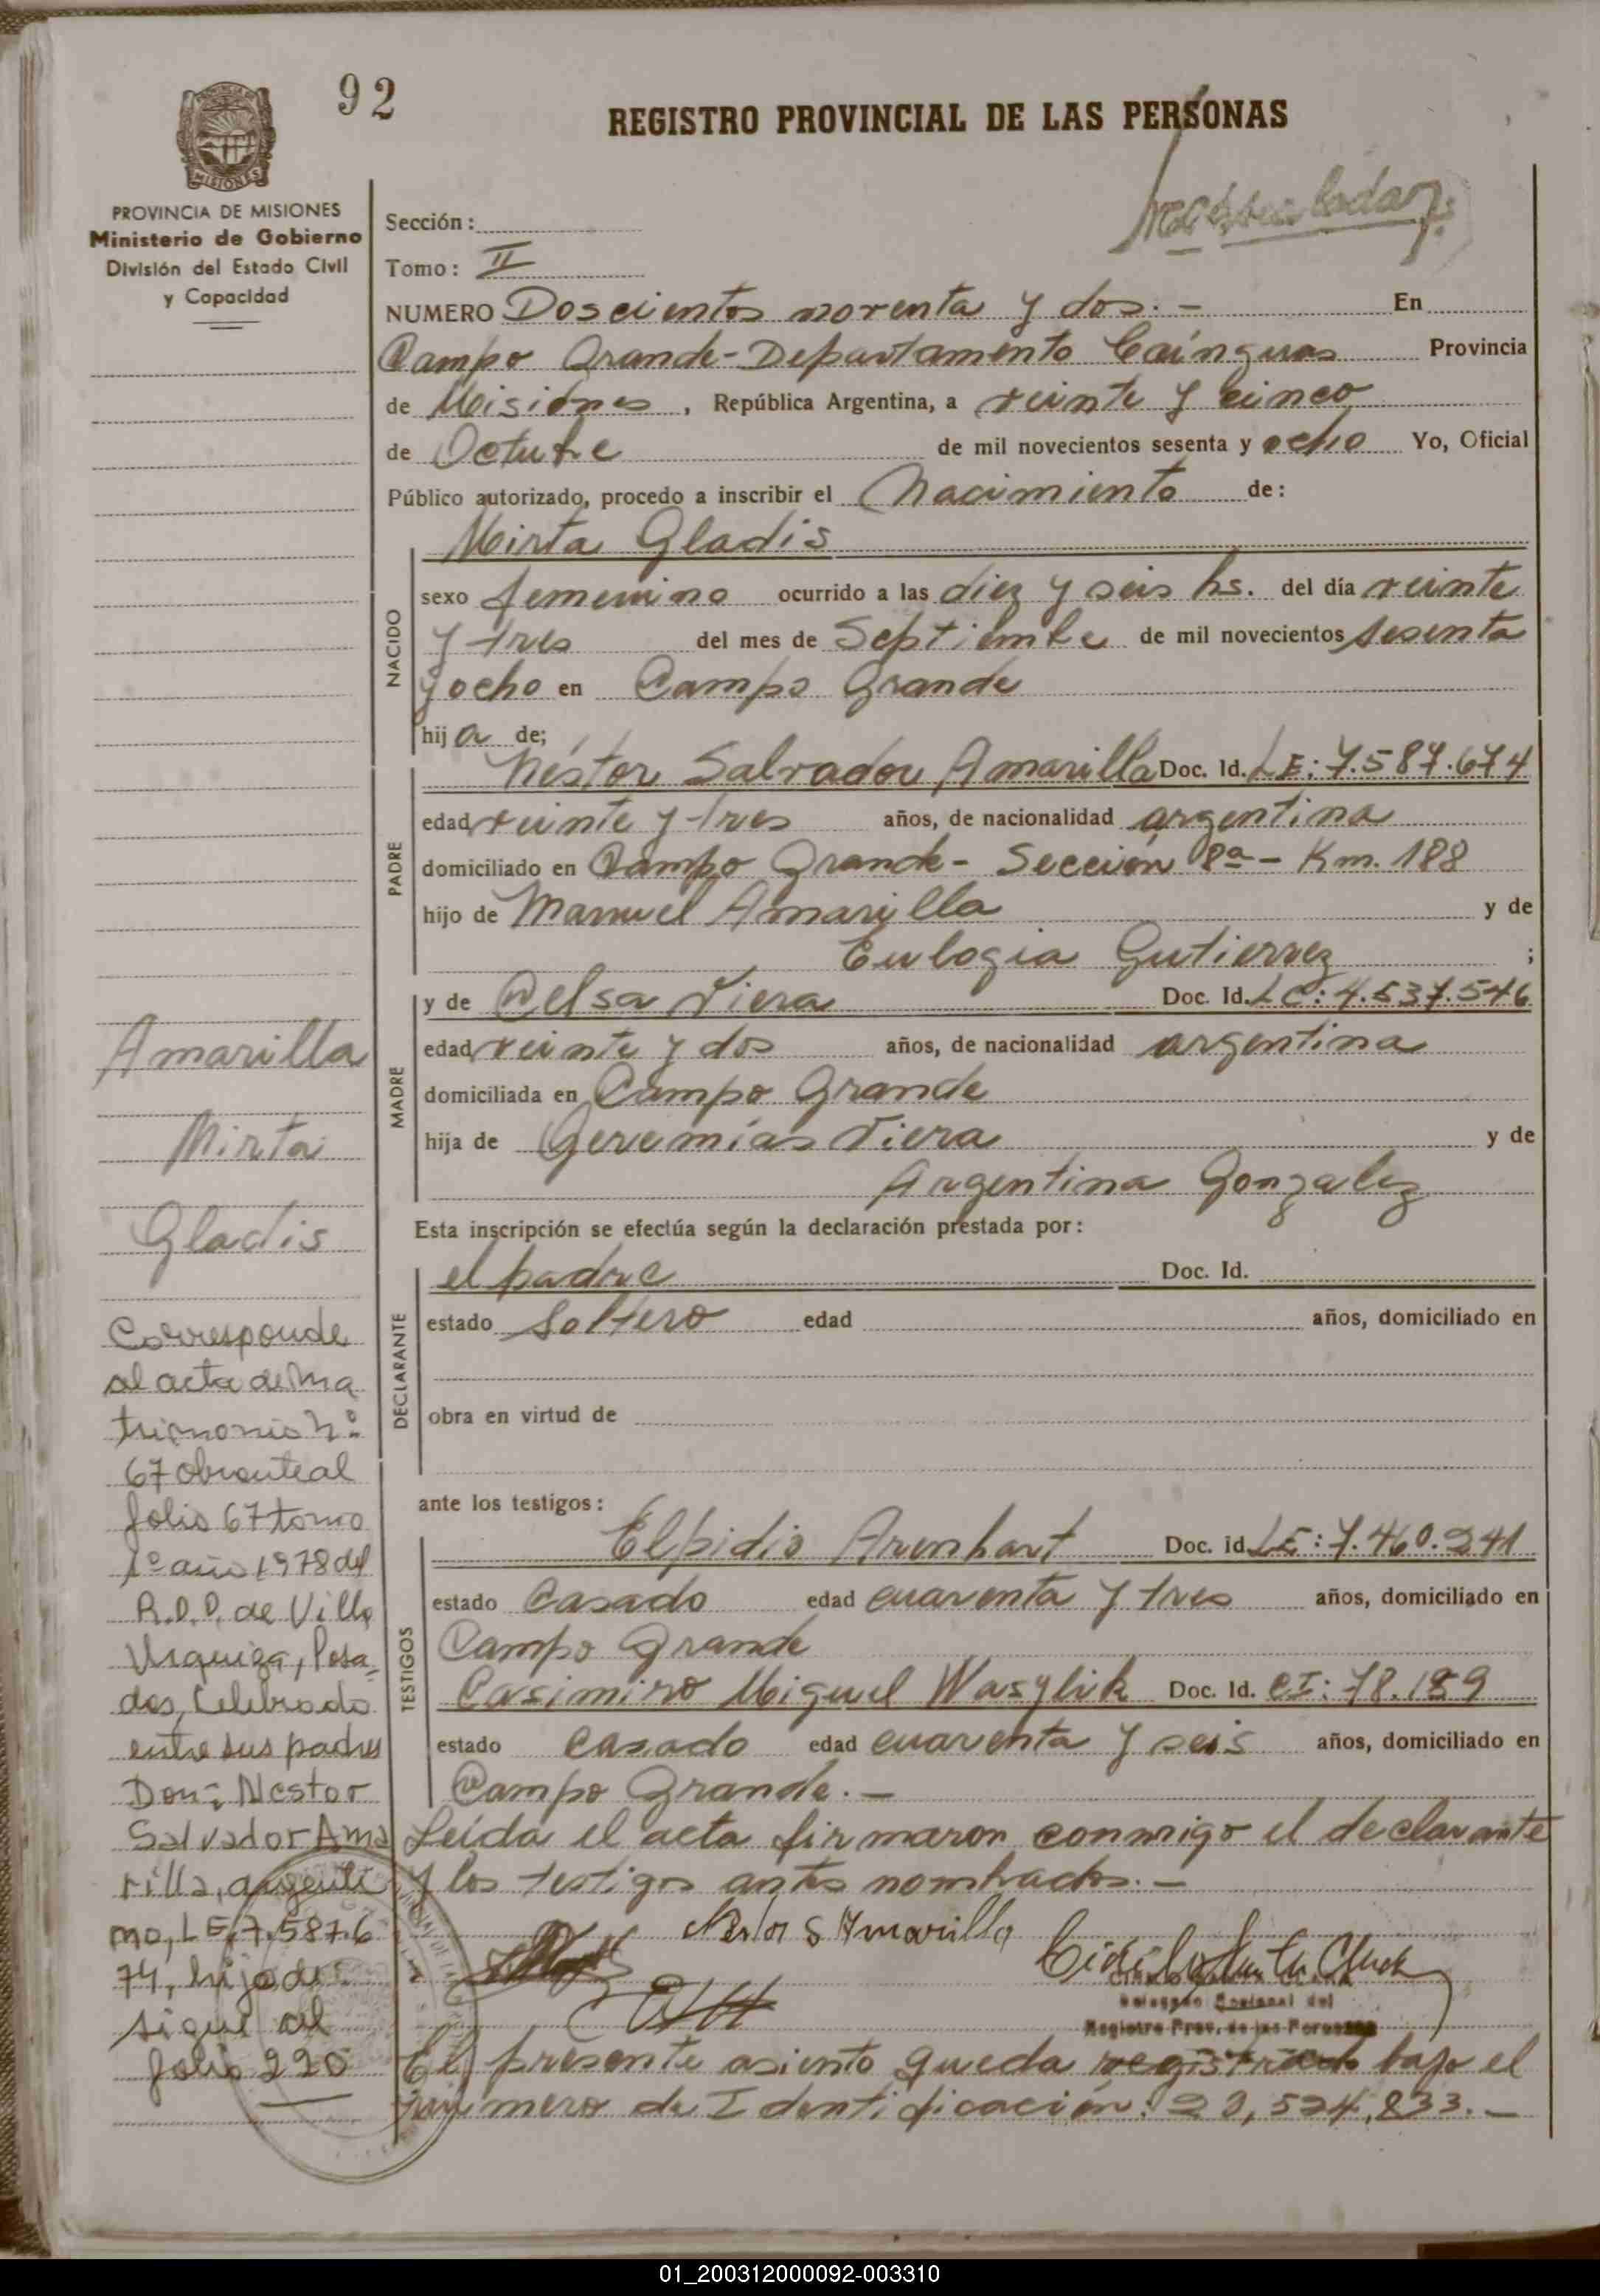 92
REGISTRO PROVINCIAL DE LAS PERSONAS
MISIONES
PROVINCIA DE MISIONES
Ministerio de Gobierno
División del Estado Civil
y Capacidad
Sección:
Tomo: II
NUMERO Doscientos noventa y dos.- En
Campo Grande-Departamento Caínguas Provincia
de Misiones, República Argentina, a veinte y cinco
de Octubre de mil novecientos sesenta y ocho Yo, Oficial
Público autorizado, procedo a inscribir el Nacimiento de:
Mirta Gladis
NACIDO
sexo femenino ocurrido a las diez y seis hs. del día veinte
y tres del mes de Septiembre de mil novecientos sesenta
y ocho en Campo Grande
hija de;
PADRE
Néstor Salvador Amarilla Doc. Id. LE: 7.587.674
edad veinte y tres años, de nacionalidad argentina
domiciliado en Campo Grande- Sección 8ª- Km. 188
hijo de Manuel Amarilla y de
Eulogia Gutierrez ;
MADRE
y de Celsa Viera Doc. Id. LC: 4.537.546
edad veinte y dos años, de nacionalidad argentina
domiciliada en Campo Grande
hija de Geremías Viera y de
Argentina Gonzalez
Esta inscripción se efectúa según la declaración prestada por:
DECLARANTE
el padre Doc. Id.
estado Soltero edad años, domiciliado en
obra en virtud de
ante los testigos:
TESTIGOS
Elpidio Arenhart Doc. id LE: 7.460.241
estado Casado edad cuarenta y tres años, domiciliado en
Campo Grande
Casimiro Miguel Wasylik Doc. Id. CI: 78.189
estado casado edad cuarenta y seis años, domiciliado en
Campo Grande.-
Leída el acta firmaron conmigo el declarante
y los testigos antes nombrados.-
Nestor S Amarilla
Registro Prov. de las Personas
El presente asiento queda registrado bajo el
número de Identificación: 20,524,833.-
Amarilla
Mirta
Gladis
Corresponde
al acta de ma
trimonio Nº
67 obrante al
folio 67 tomo
1º año 1978 del
R.P.P. de Villa
Urquiza, Posa-
das, Celebrado
entre sus padres
Don: Nestor
Salvador Ama
rilla, argenti
no, LE 7.587.6
74, hijo de
sigue al
folio 220
01_200312000092-003310